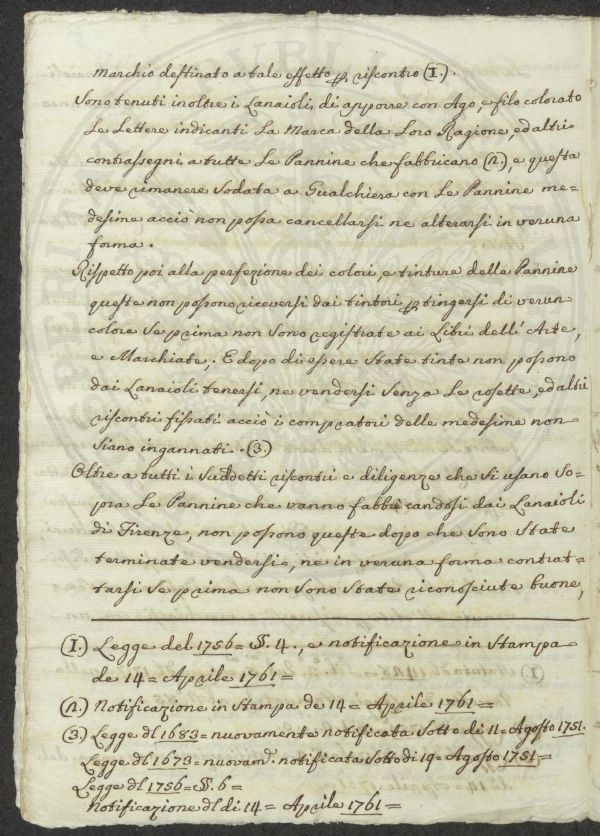 marchio destinato a tale effetto p riscontro (1.).
Sono tenuti inoltre i Lanaioli di apporre con Ago, e filo colorato
Le Lettere indicanti La Marca della Loro Ragione, ed altri
contrassegni a tutte Le Pannine che fabbricano (2.), e questa
deve rimanere Sodata a Gualchiera con Le Pannine me=
desime acciò non possa cancellarsi ne alterarsi in veruna
forma.
Rispetto poi alla perfezione dei colori, e tinture delle Pannine
queste non possono riceversi dai tintori p tingersi di verun
colore Se prima non Sono registrate ai Libri dell' Arte,
e Marchiate; E dopo di essere State tinte non possono
dai Lanaioli tenersi, ne vendersi Senza Le rosette, ed altri
riscontri fissati acciò i compratori delle medesime non
Siano ingannati. (3.)
Oltre a tutti i Suddetti riscontri e diligenze che Si usano So=
pra Le Pannine che vanno fabbricandosi dai Lanaioli
di Firenze, non possono queste dopo che Sono State
terminate vendersi, ne in veruna forma contrat=
tarsi Se prima non Sono State riconosciute buone,
(1.) Legge del 1756= §. 4., e notificazione in Stampa
de 14= Aprile 1761=
(2.) Notificazione in Stampa de 14= Aprile 1761=
(3.) Legge dl 1683= nuovamente notificata Sotto di 11= Agosto 1751.
Legge dl 1673= nuovam. notificata Sotto di 19= Agosto 1751=
Legge dl 1756= §. 6=
Notificazione dl di 14= Aprile 1761=